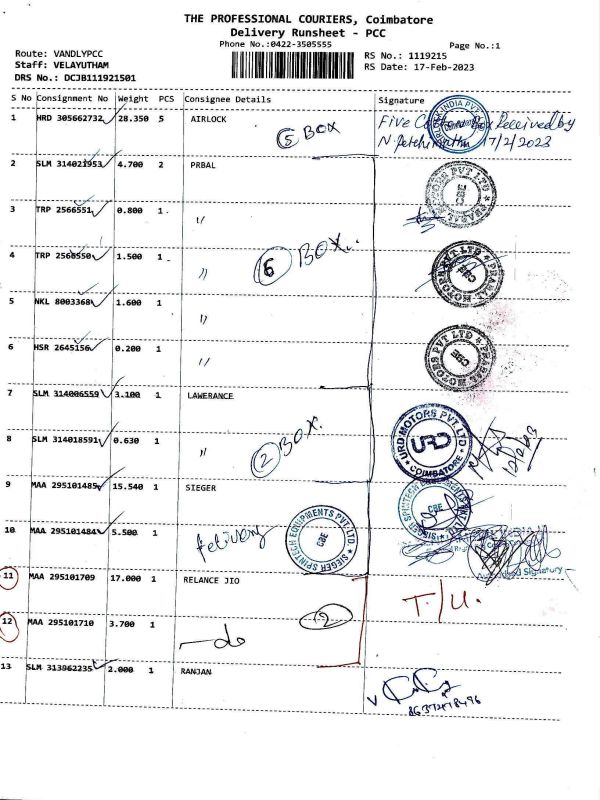 THE PROFESSIONAL COURIERS, Coimbatore
Delivery Runsheet - PCC
Phone No.:0422-3505555
Page No.:1
Route: VANDLYPCC
Staff: VELAYUTHAM
DRS No.: DCJB111921501
RS No.: 1119215
RS Date: 17-Feb-2023
S No Consignment No Weight PCS Consignee Details Signature
1 HRD 305662732 28.350 5 AIRLOCK
5 BOX
Five Box Received by
17/2/2023
2 SLM 314021953 4.700 2 PRBAL
3 TRP 2566551 0.800 1 "
4 TRP 2566550 1.500 1 "
6 BOX
5 NKL 8003368 1.600 1 "
6 HSR 2645156 0.200 1 "
PRABAL MOTORS PVT LTD
CBE
7 SLM 314006559 3.100 1 LAWERANCE
8 SLM 314018591 0.630 1 "
2 BOX.
URD MOTORS PVT LTD
URD
COIMBATORE
9 MAA 295101485 15.540 1 SIEGER
10 MAA 295101484 5.500 1
SIEGER SPINTECH EQUIPMENTS PVT LTD.
CBE
Signatory
11 MAA 295101709 17.000 1 RELANCE JIO
T/U.
12 MAA 295101710 3.700 1
2
do
13 SLM 313962235 2.000 1 RANJAN